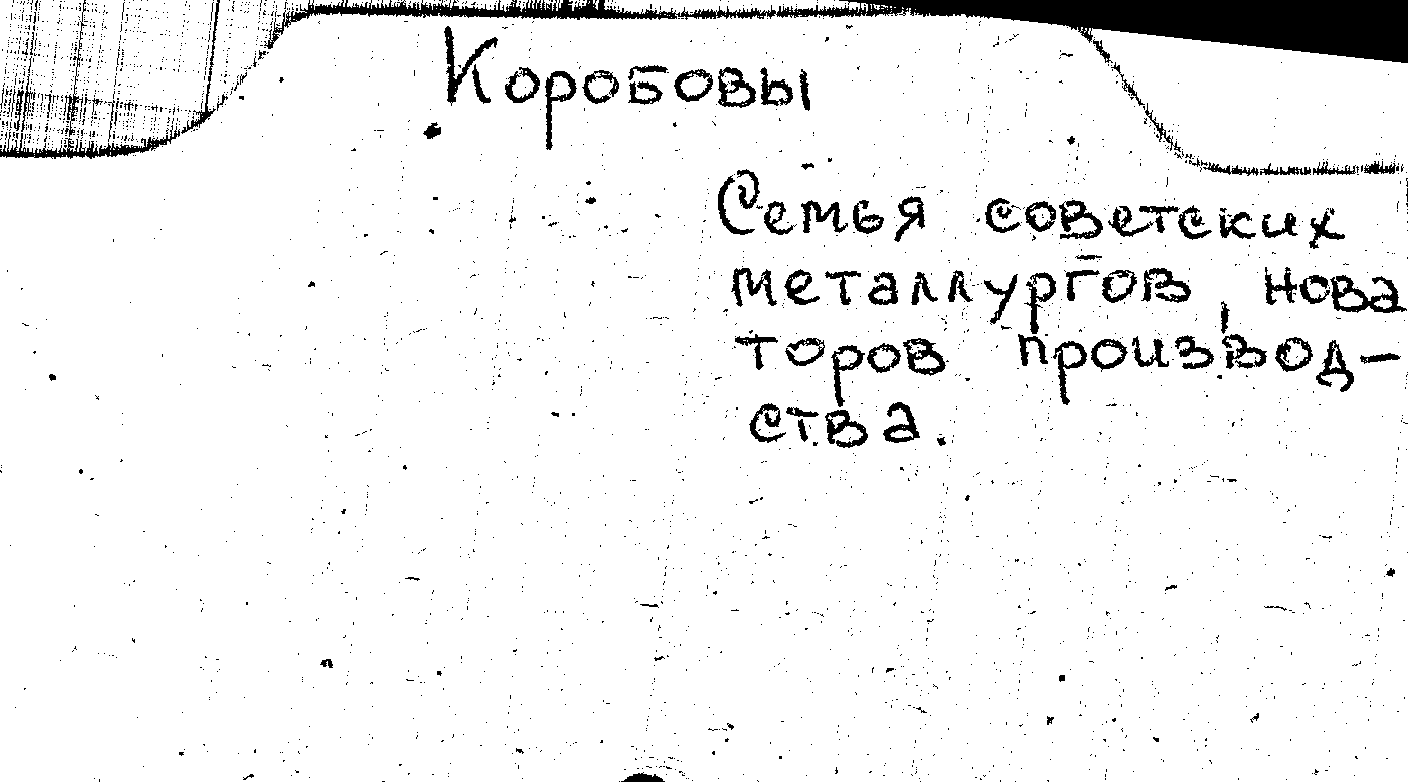 Коробовы
Семья советских
металлургов, нова
торов производ-
ства.